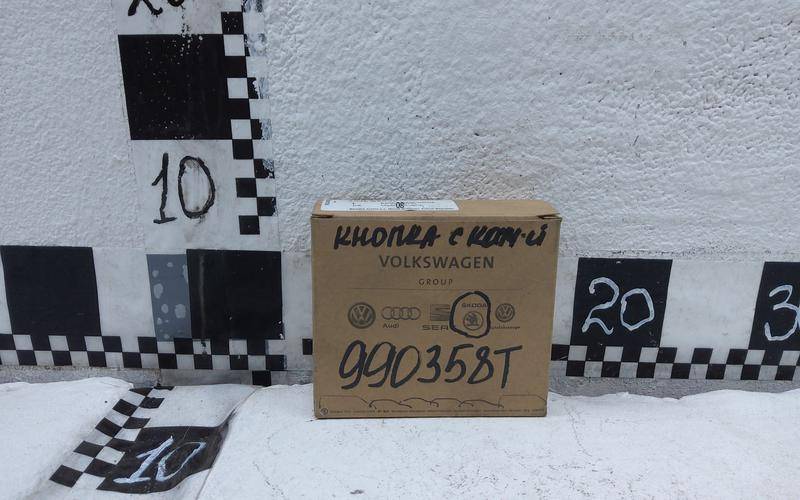 20
10
08
КНОПКА С КОМ-Й
VOLKSWAGEN
GROUP
Audi
SEAT
ŠKODA
990358T
20
3
10